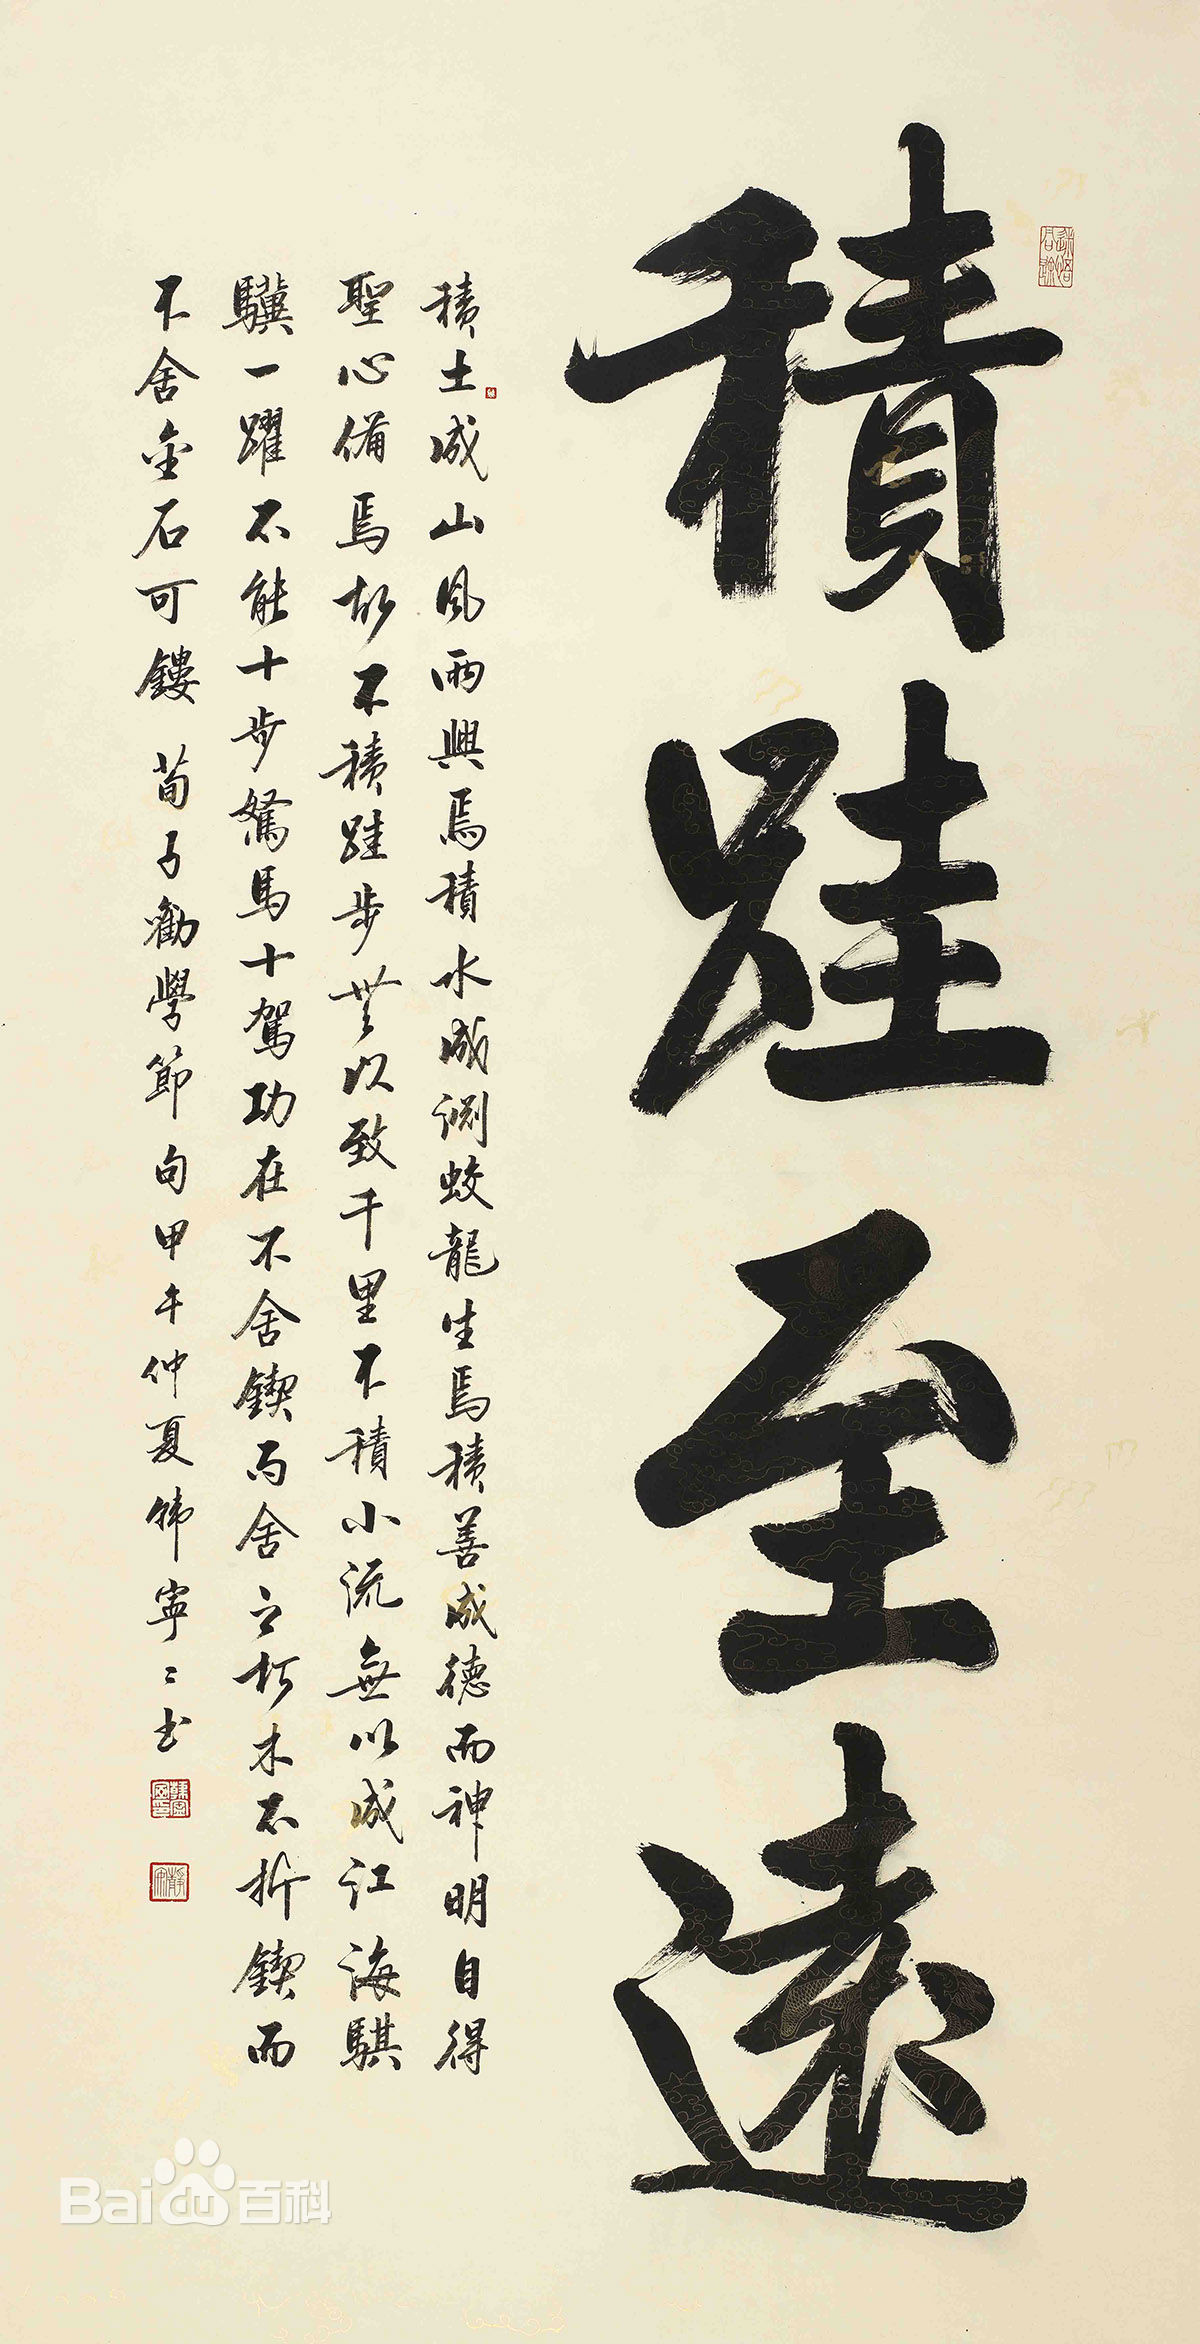 積跬至遠
積土成山風雨興焉積水成淵蛟龍生焉積善成德而神明自得
聖心備焉故不積跬步無以致千里不積小流無以成江海騏
驥一躍不能十步駑馬十駕功在不舍鍥而舍之朽木不折鍥而
不舍金石可鏤 荀子勸學節句甲午仲夏韩寧二书
Bai百科